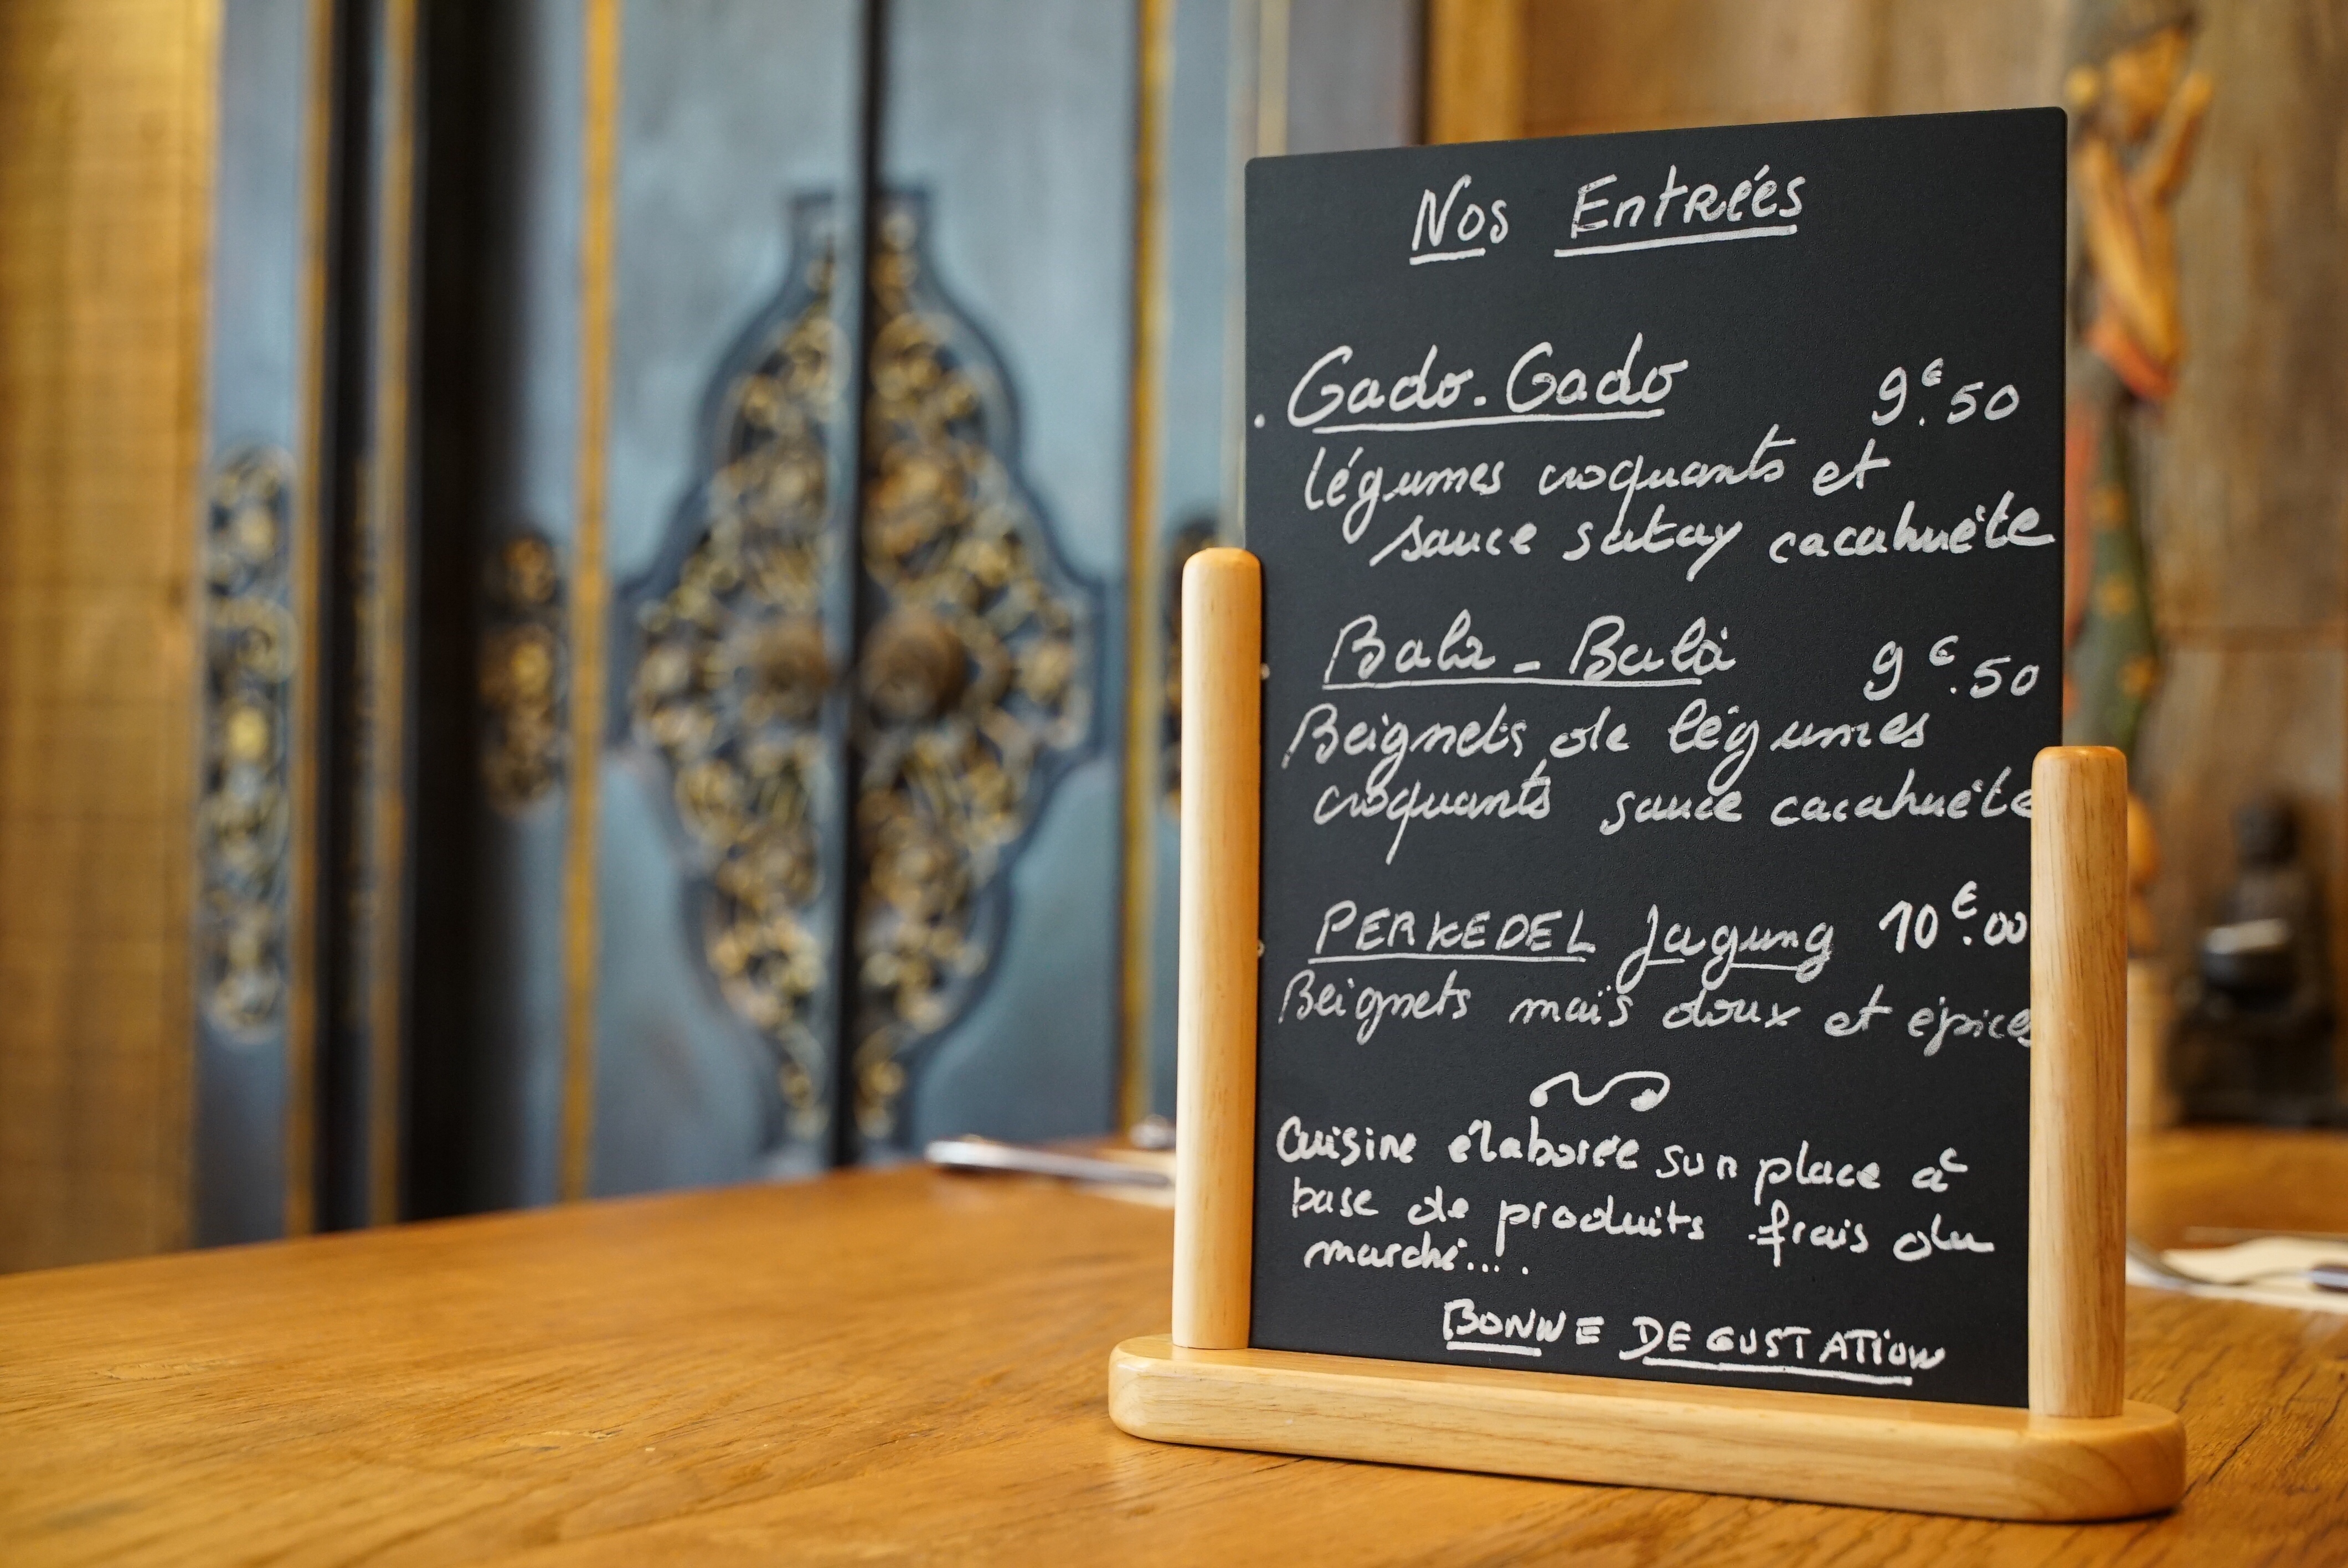 Nos Entrées
. Gado-Gado 9€.50
légumes croquants et
sauce satay cacahuète
Bala-Bala 9€.50
Beignets de légumes
croquants sauce cacahuète
PERKEDEL Jagung 10€.00
Beignets maïs doux et epices
Cuisine élaborée sur place à
base de produits frais du
marché....
BONNE DEGUSTATION